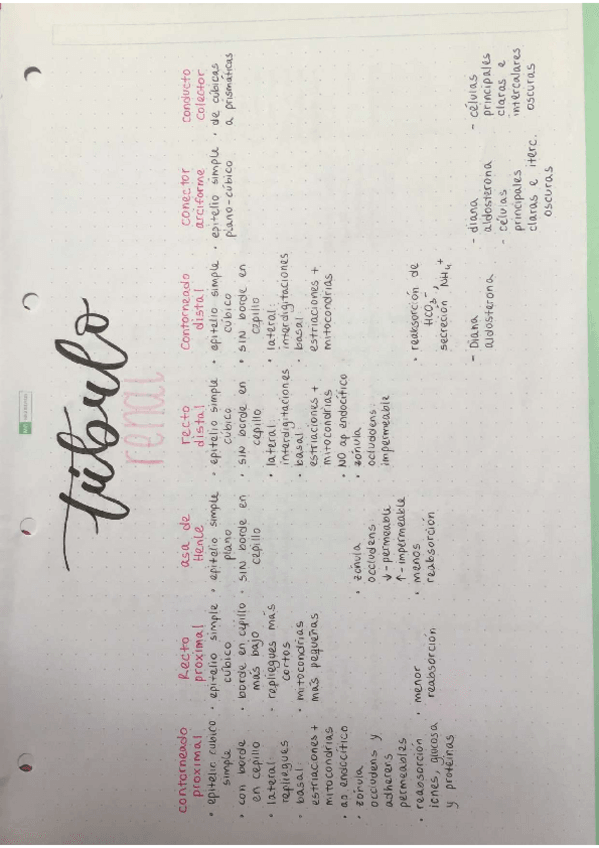 túbulo
renal
contorneado
proximal
• epitelio cúbico
simple
• con borde
en cepillo
• lateral:
repliegues
• basal:
estriaciones +
mitocondrias
• ap endocítico
• zónula
occludens y
adherens
permeables
• reabsorción
iones, glucosa
y proteínas
Recto
proximal
• epitelio simple
cúbico
• borde en cepillo
más bajo
• repliegues más
cortos
• mitocondrias
más pequeñas
• menor
reabsorción
asa de
Henle
• epitelio simple
plano
• SIN borde en
cepillo
• zónula
occludens
↓ - permeable
↑ - impermeable
• menos
reabsorción
recto
distal
• epitelio simple
cúbico
• SIN borde en
cepillo
• lateral:
interdigitaciones
• basal:
estriaciones +
mitocondrias
• NO ap endocítico
• zónula
ocluddens:
impermeable
Contorneado
distal
• epitelio simple
cúbico
• SIN borde en
cepillo
• lateral:
interdigitaciones
• basal:
estriaciones +
mitocondrias
• reabsorción de
HCO3-,
secreción NH4+
- Diana
aldosterona
conector
arciforme
• epitelio simple
plano-cúbico
- diana
aldosterona
- células
principales
claras e iterc.
oscuras
conducto
colector
• de cúbicas
a prismáticas
- células
principales
claras e
intercalares
oscuras